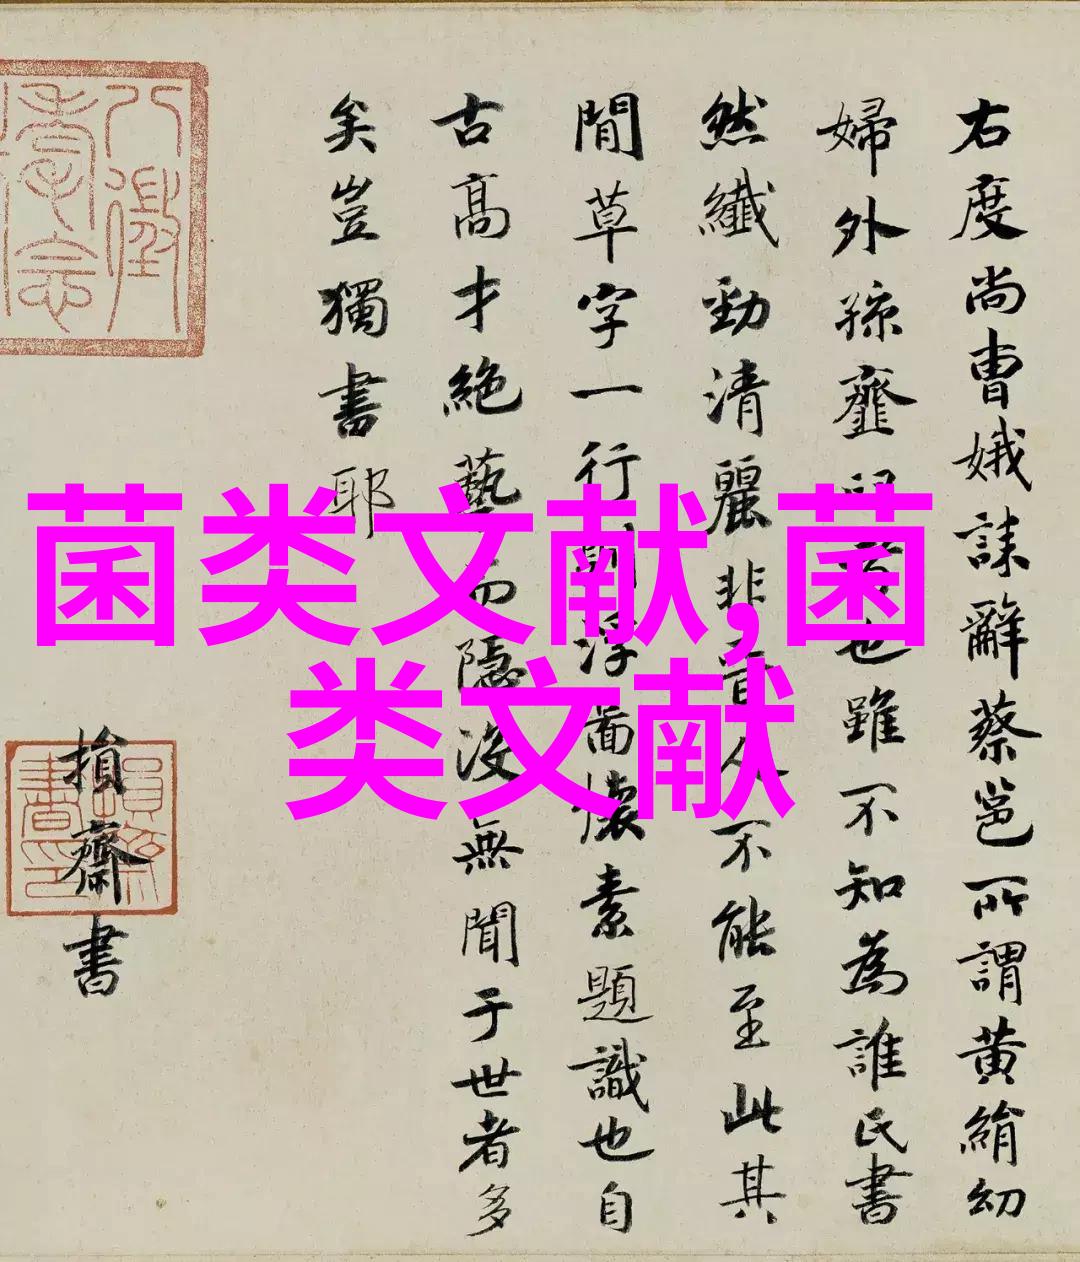 右度尚曹娥誄辭蔡邕所謂黃絹幼
婦外孫韲臼也雖不知為誰氏書
然纖勁清麗非晉人不能至此其
閒草字一行則浮啚懷素題識也自
古高才絕藝而隱沒無聞于世者多
矣豈獨書耶
損齋書
菌类文献,菌
类文献